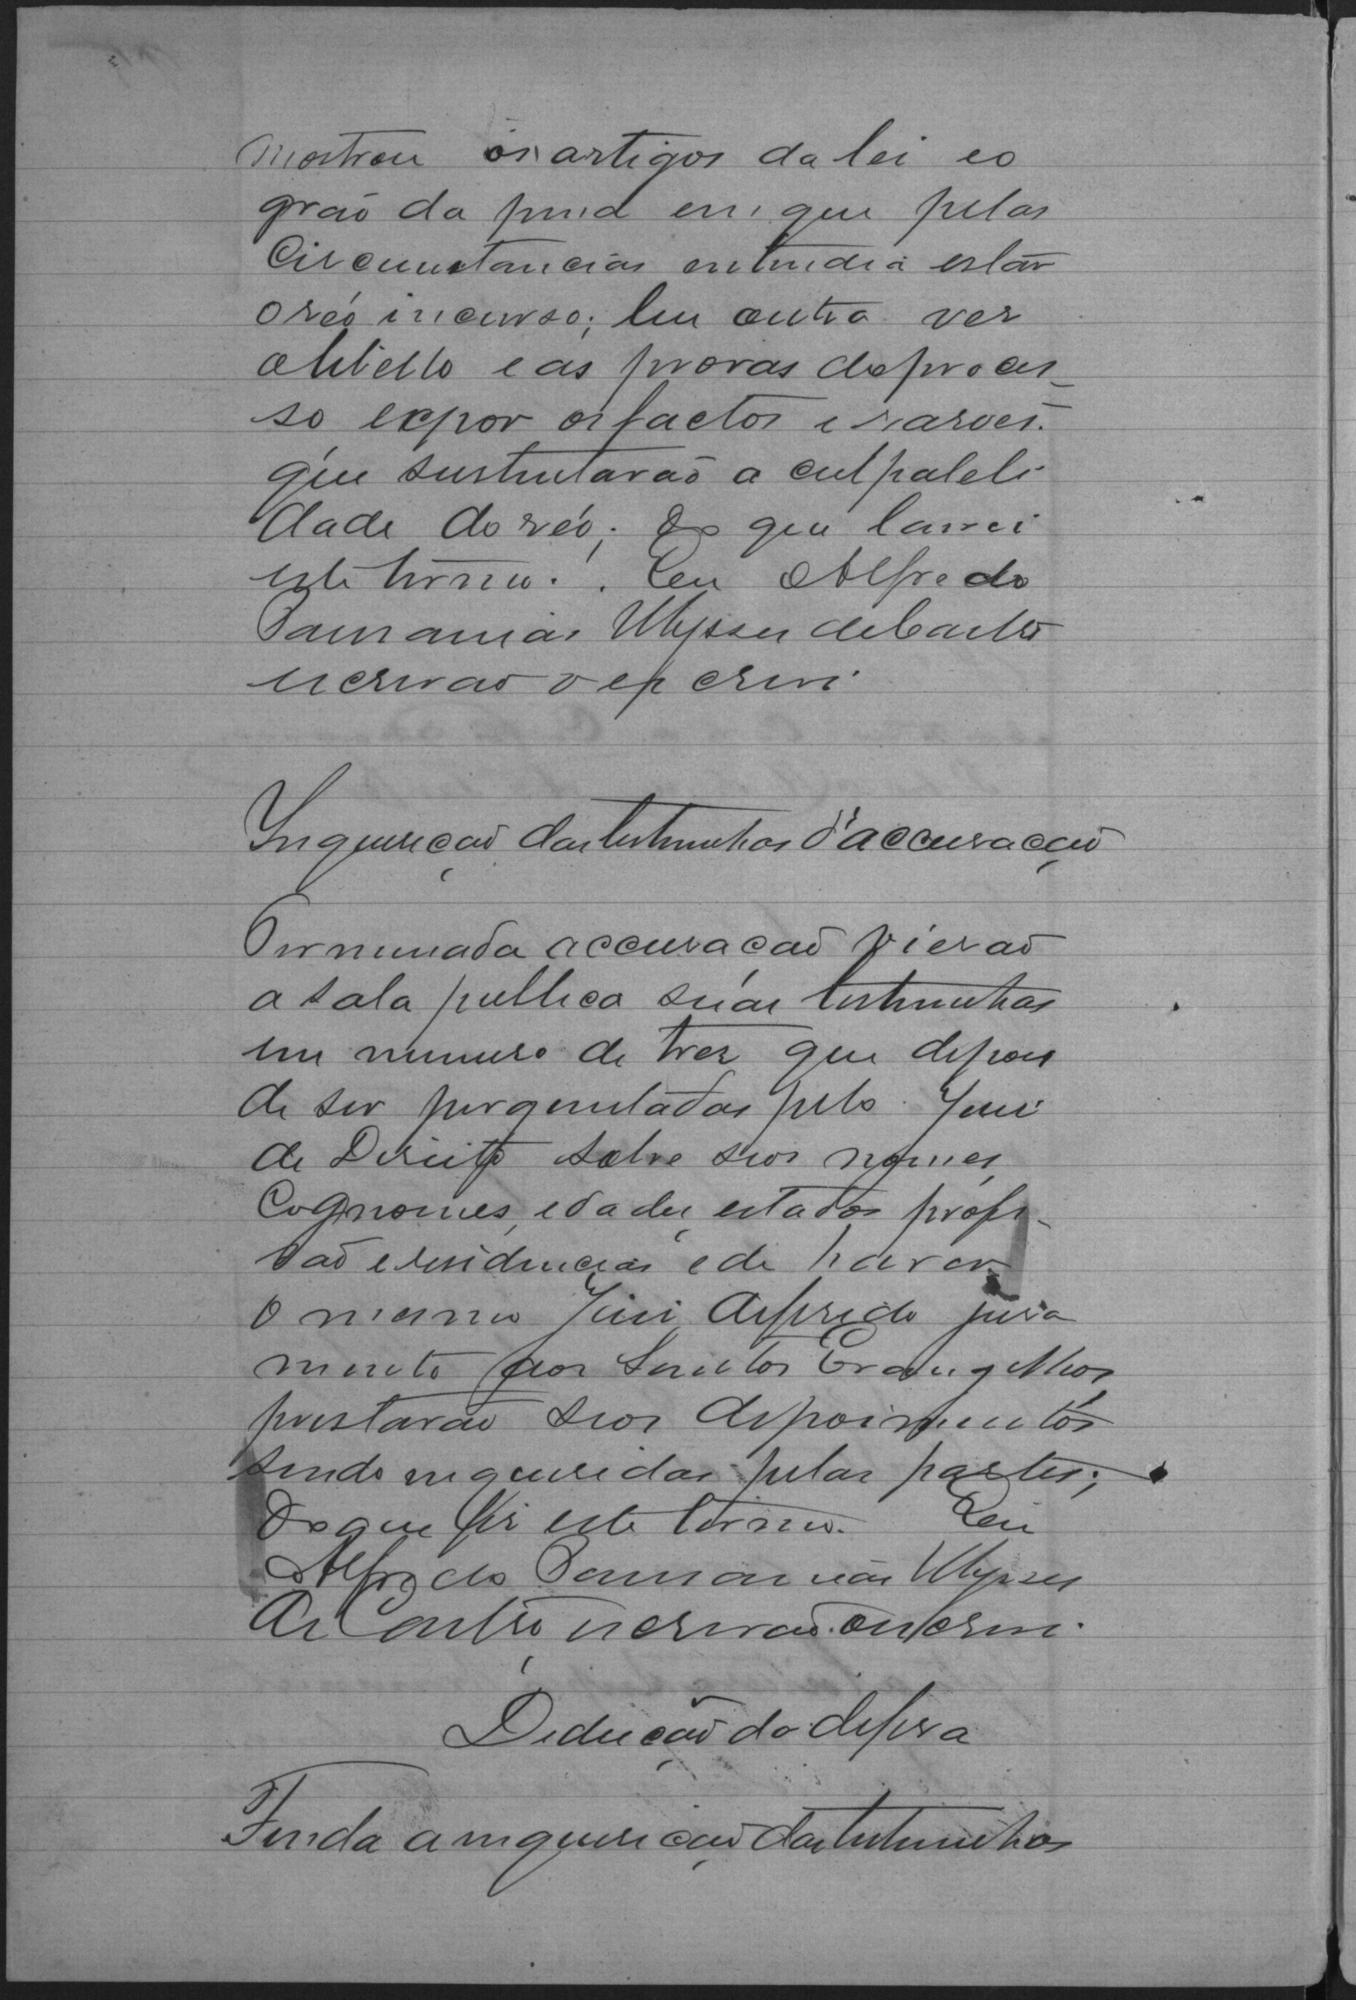 mostrou os artigos da lei eo
gráo da pena em que pelas
Circumstancias entendia estár
o réo incurso; leu outra vez
o libello e as provas do proces_
so expor os factos e rasões
que sustentavão a culpabeli
dade do réo; do que lavrei
este termo. Eu Alfredo
Pausanias Ulysses de Castro
escrivão o escrevi.
Inquerição das testemunhas d'accusacção
Terminada accusação vierão
a sala publica suas testemunhas
em numero de tres que depois
de ser perguntadas pelo Juis
de Direito sobre seos nomes,
Cognomes, edades, estados, profis_
são e residencias e de haver
o mesmo Juis deferido jura
mento aos Santos Evangelhos,
prestarão seos depoimentos
sendo inqueridas pelas partes;
Do que fis este termo. Eu
Alfredo Pausanias Ulysses
de Castro, escrivão escrevi.
Dedução da defesa
Finda a inquerição das testemunhas